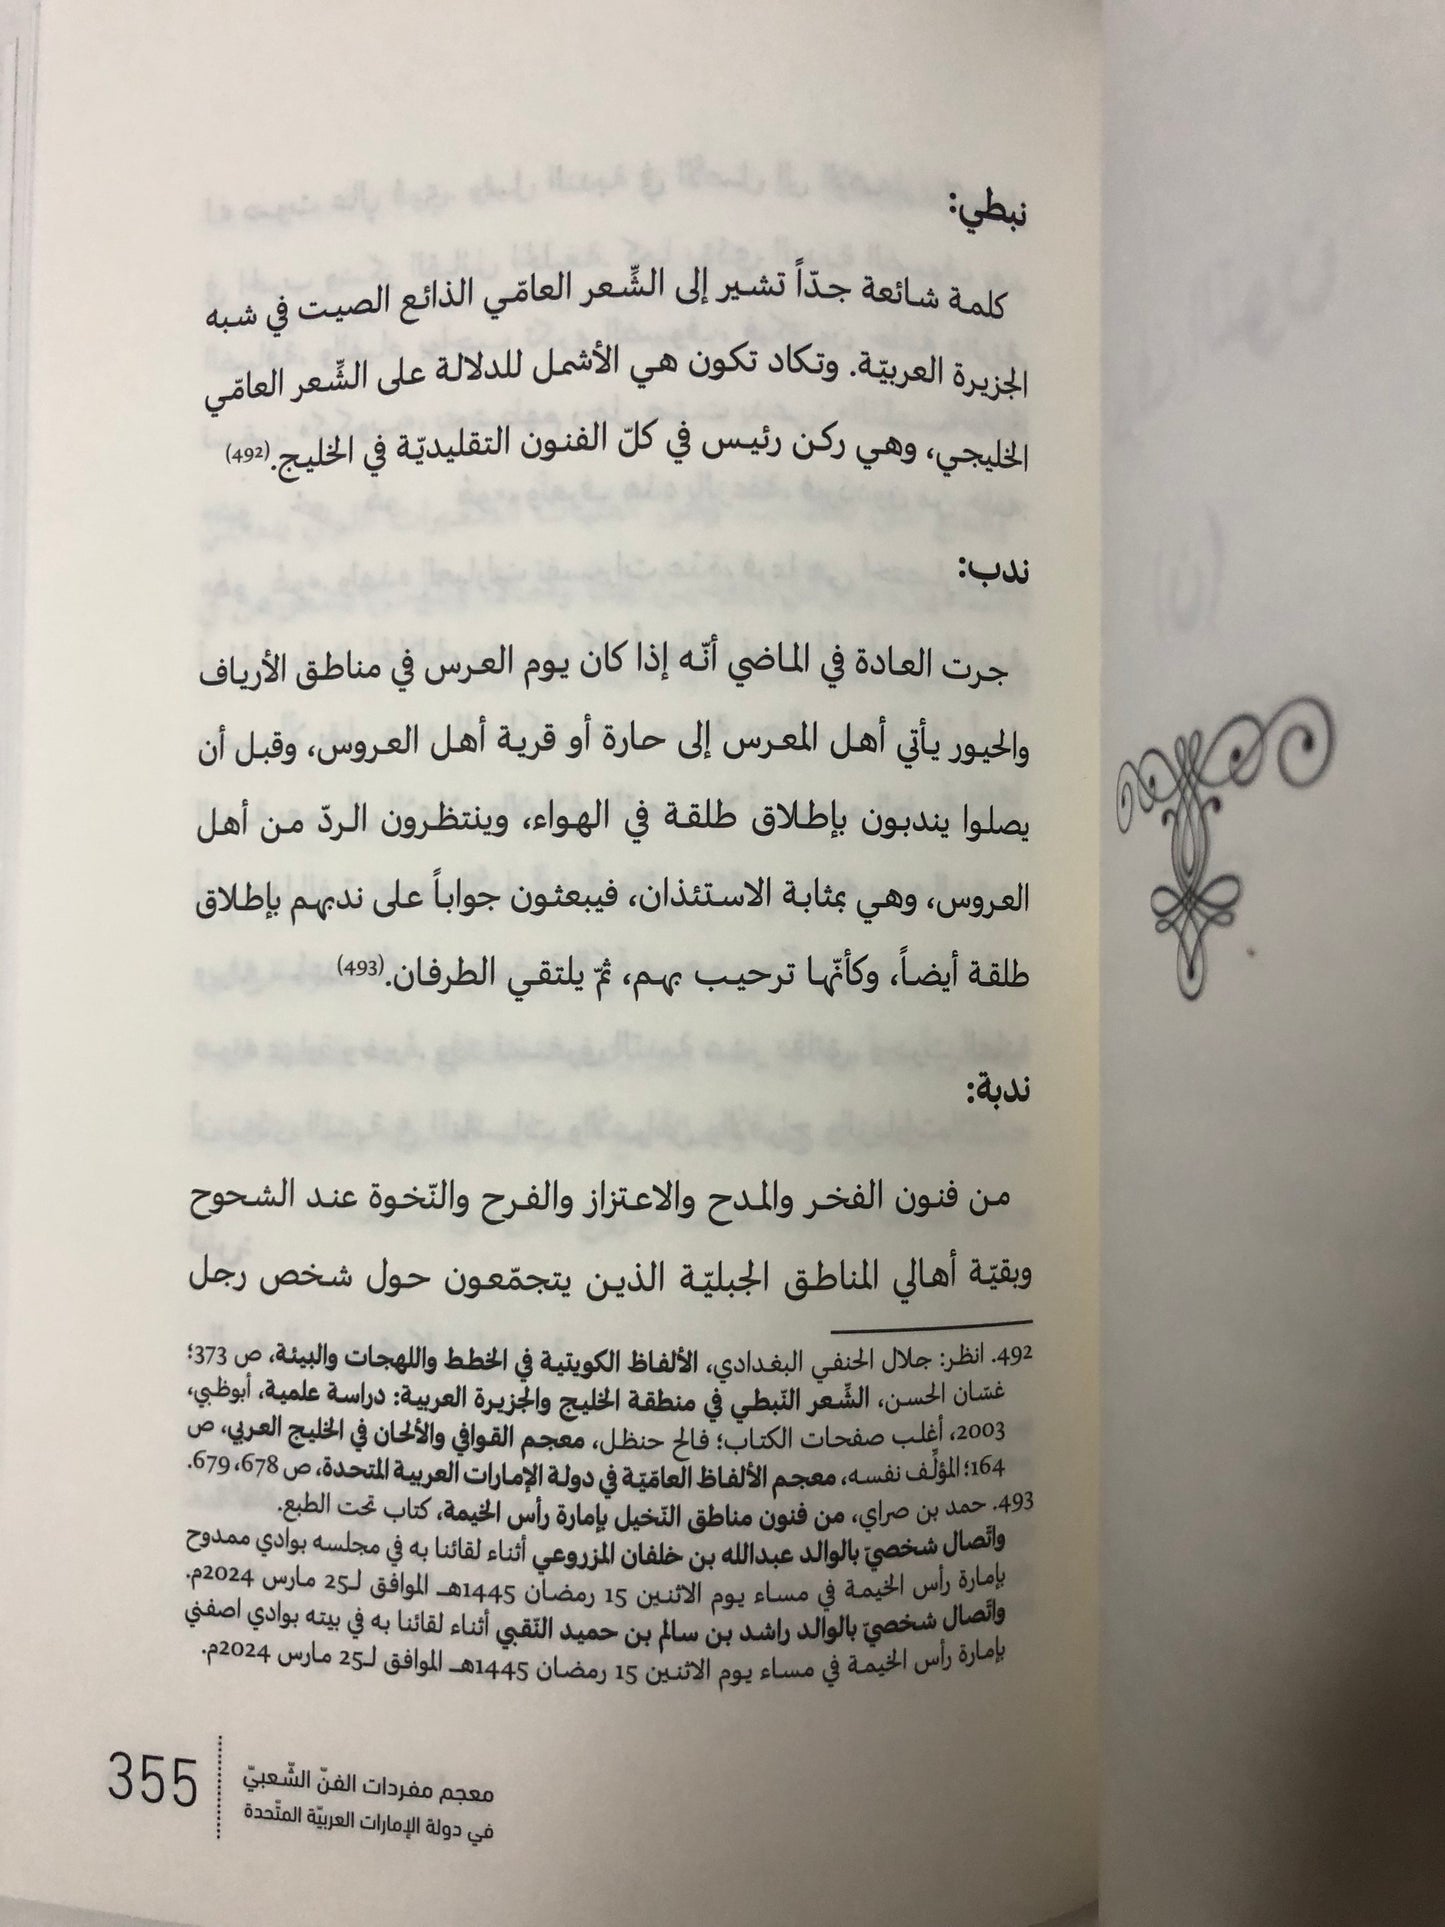 نبطي:
كلمة شائعة جدّاً تشير إلى الشِّعر العامّي الذائع الصيت في شبه
الجزيرة العربيّة. وتكاد تكون هي الأشمل للدلالة على الشِّعر العامّي
الخليجي، وهي ركن رئيس في كلّ الفنون التقليديّة في الخليج.(492)
ندب:
جرت العادة في الماضي أنّه إذا كان يوم العرس في مناطق الأرياف
والحيور يأتي أهل المعرس إلى حارة أو قرية أهل العروس، وقبل أن
يصلوا يندبون بإطلاق طلقة في الهواء، وينتظرون الردّ من أهل
العروس، وهي بمثابة الاستئذان، فيبعثون جواباً على ندبهم بإطلاق
طلقة أيضاً، وكأنّها ترحيب بهم، ثمّ يلتقي الطرفان.(493)
ندبة:
من فنون الفخر والمدح والاعتزاز والفرح والنّخوة عند الشحوح
وبقيّة أهالي المناطق الجبليّة الذين يتجمّعون حول شخص رجل
492. انظر: جلال الحنفي البغدادي، الألفاظ الكويتية في الخطط واللهجات والبيئة، ص 373؛
غسّان الحسن، الشِّعر النّبطي في منطقة الخليج والجزيرة العربية: دراسة علمية، أبوظبي،
2003، أغلب صفحات الكتاب؛ فالح حنظل، معجم القوافي والألحان في الخليج العربي، ص
164؛ المؤلِّف نفسه، معجم الألفاظ العامّيّة في دولة الإمارات العربية المتحدة، ص 678، 679.
493. حمد بن صراي، من فنون مناطق النّخيل بإمارة رأس الخيمة، كتاب تحت الطبع.
واتّصال شخصيّ بالوالد عبدالله بن خلفان المزروعي أثناء لقائنا به في مجلسه بوادي ممدوح
بإمارة رأس الخيمة في مساء يوم الاثنين 15 رمضان 1445هـ الموافق لـ25 مارس 2024م.
واتّصال شخصيّ بالوالد راشد بن سالم بن حميد النّقبي أثناء لقائنا به في بيته بوادي اصفني
بإمارة رأس الخيمة في مساء يوم الاثنين 15 رمضان 1445هـ الموافق لـ25 مارس 2024م.
معجم مفردات الفنّ الشّعبيّ
في دولة الإمارات العربيّة المتّحدة
355